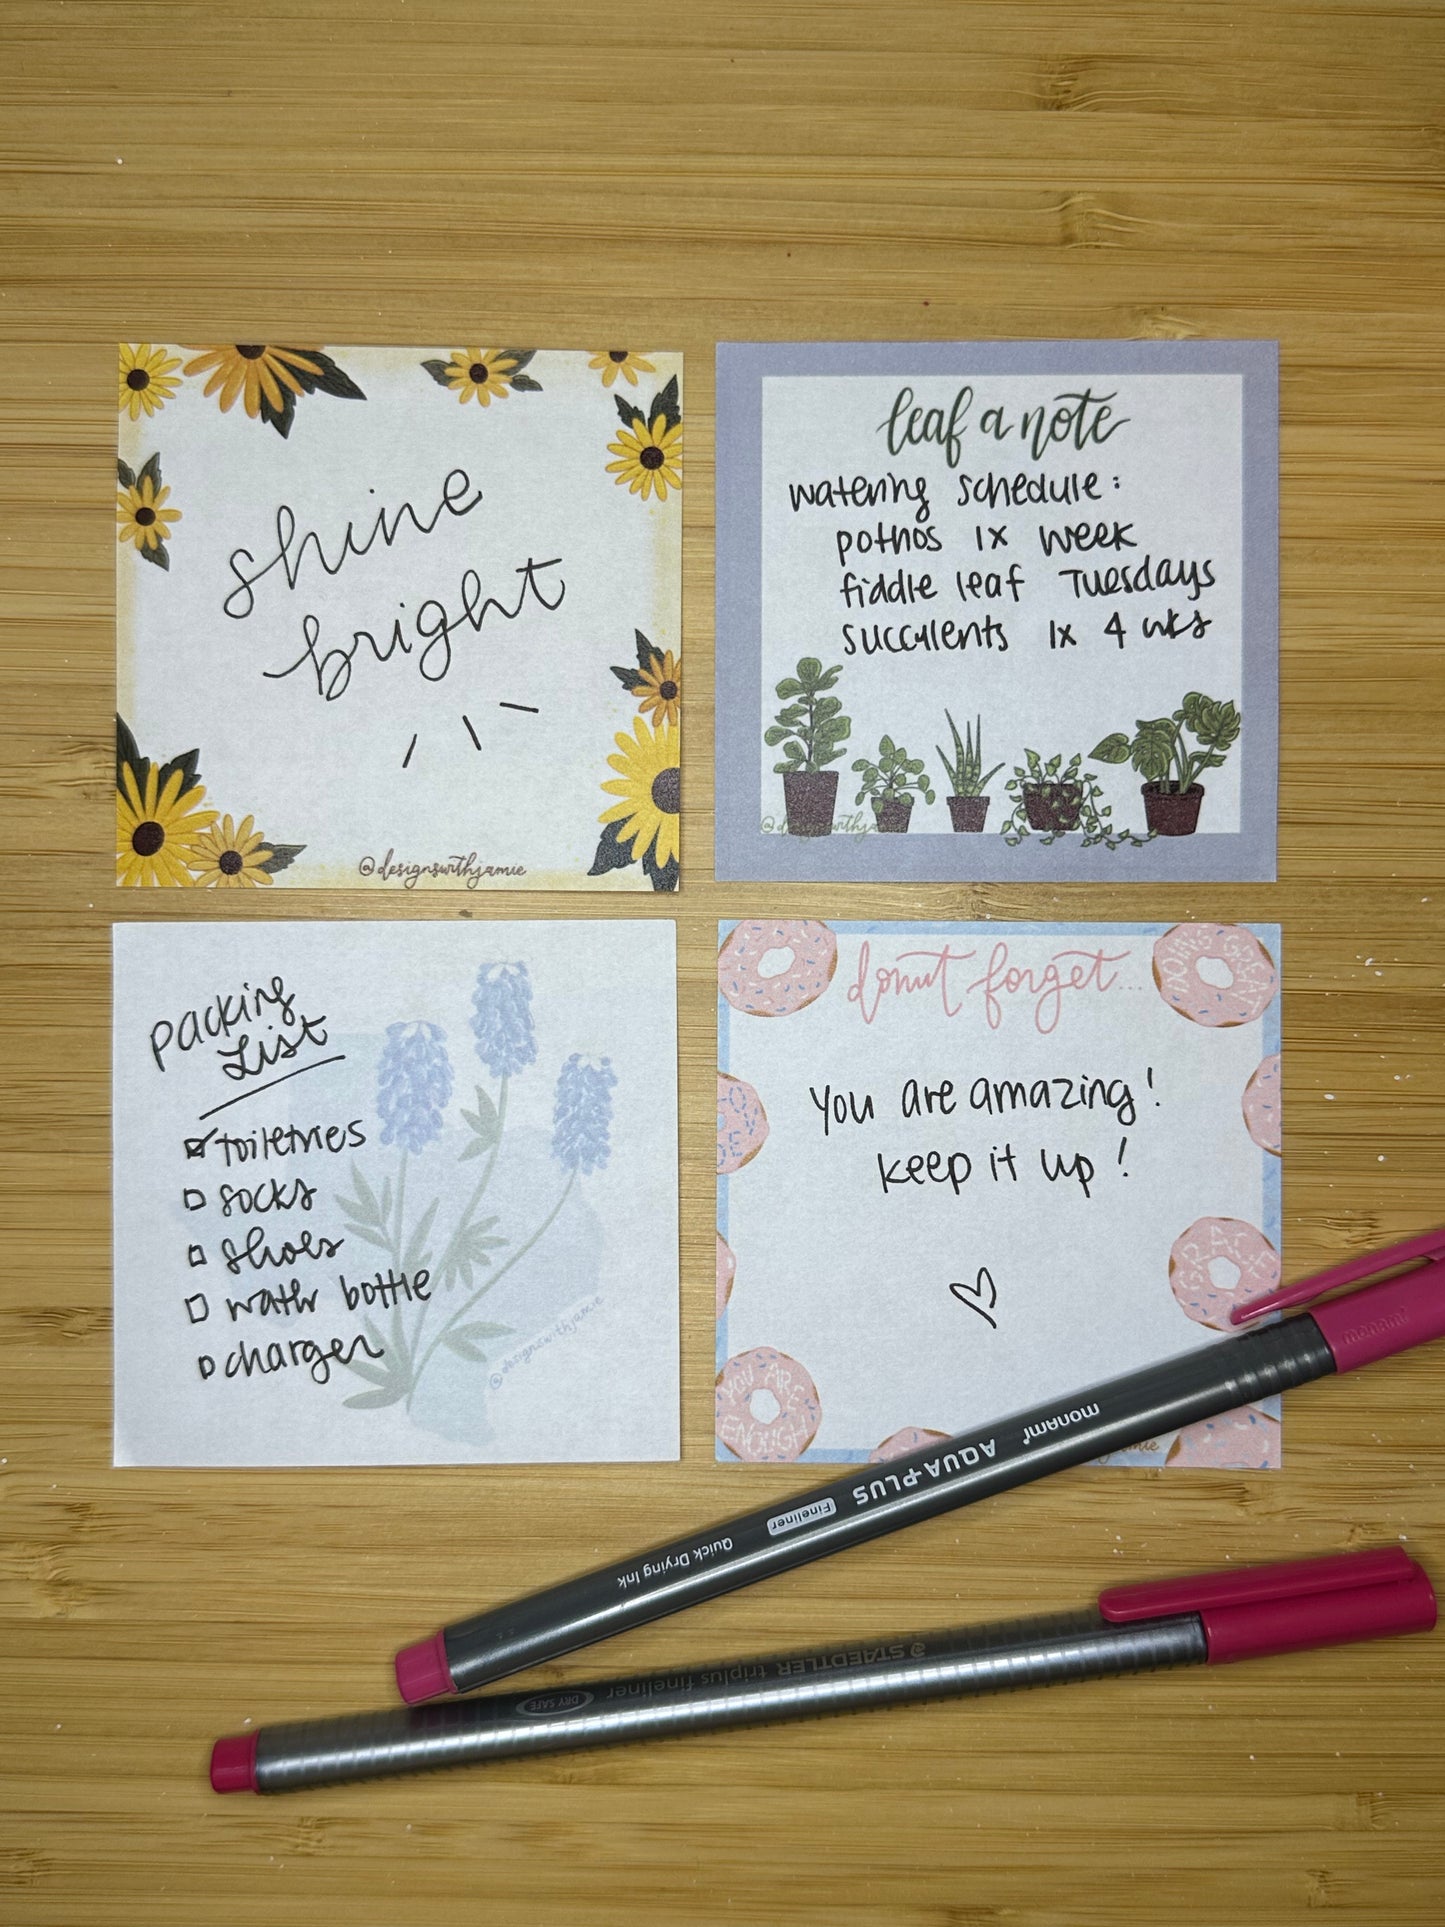 shine
bright
@designswithjamie
leaf a note
watering schedule:
pothos 1x week
fiddle leaf Tuesdays
succulents 1x 4 wks
@designswithja
Packing
List
toiletries
socks
shoes
water bottle
charger
@designswithjamie
donut forget...
DOING GREAT
You are amazing!
keep it up!
GRACE
YOU ARE
ENOUGH
jamie
monami
monami AQUA-PLUS
Fineliner
Quick Drying Ink
STAEDTLER triplus fineliner
DRY SAFE